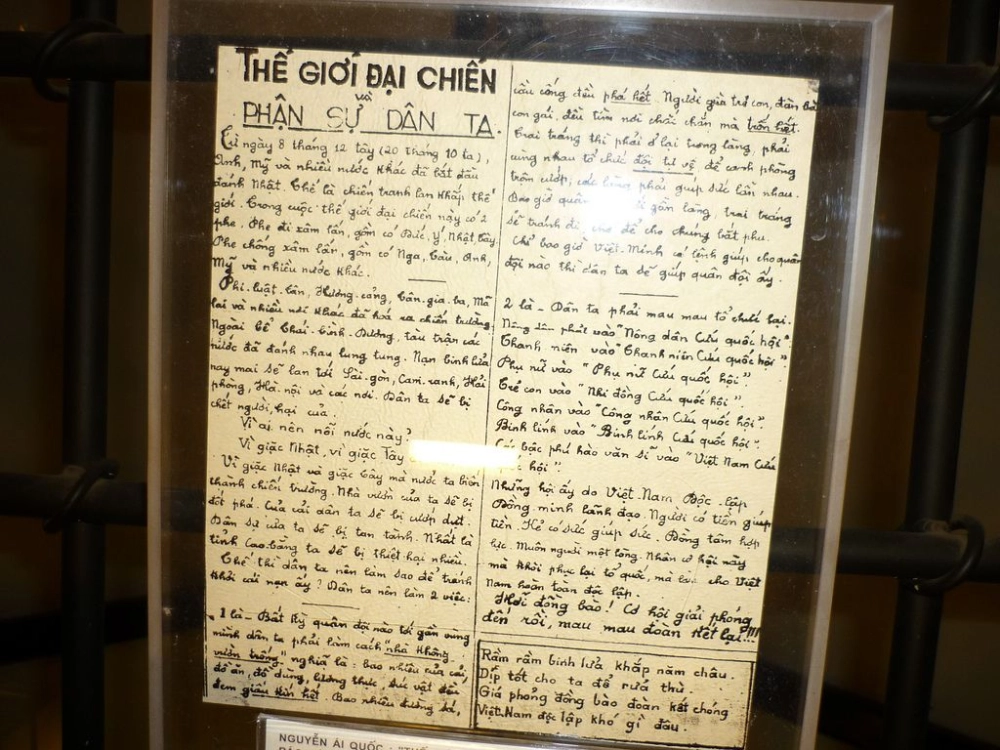 THẾ GIỚI ĐẠI CHIẾN
và
PHẬN SỰ DÂN TA.
Từ ngày 8 tháng 12 tây (20 tháng 10 ta),
Anh, Mỹ và nhiều nước khác đã bắt đầu
đánh Nhật. Thế là chiến tranh lan khắp thế
giới. Trong cuộc thế giới đại chiến này có 2
phe. Phe đi xâm lấn, gồm có Đức, Ý, Nhật, Tây.
Phe chống xâm lấn, gồm có Nga, Tàu, Anh,
Mỹ và nhiều nước khác.
Phi-luật-tân, Hương-cảng, Tân-gia-ba, Mã
lai và nhiều nơi khác đã hoá ra chiến trường.
Ngoài bể Thái-bình-Dương, tàu trận các
nước đã đánh nhau lung tung. Nạn binh lửa
nay mai sẽ lan tới Sài-gòn, Cam-ranh, Hải
phòng, Hà-nội và các nơi. Dân ta sẽ bị
chết người, hại của.
Vì ai nên nỗi nước này?
Vì giặc Nhật, vì giặc Tây
Vì giặc Nhật và giặc Tây mà nước ta biến
thành chiến trường. Nhà vườn của ta sẽ bị
đốt phá. Của cải dân ta sẽ bị cướp dựt.
Dân sự của ta sẽ bị tan tành. Nhất là
tỉnh Cao-bằng ta sẽ bị thiệt hại nhiều.
Thế thì dân ta nên làm sao để tránh
khỏi cái nạn ấy? Dân ta nên làm 2 việc:
1 là - Bất kỳ quân đội nào tới gần vùng
mình dân ta phải làm cách "nhà không
vườn trống" nghĩa là: bao nhiêu của cải,
đồ ăn, đồ dùng, lương thực, súc vật đều
đem giấu kín hết. Bao nhiêu đường sá,
cầu cống đều phá hết. Người già trẻ con, đàn bà
con gái, đều tìm nơi chắc chắn mà trốn hết.
Trai tráng thì phải ở lại trong làng, phải
cùng nhau tổ chức đội tự vệ để canh phòng
trộm cướp, các làng phải giúp sức lẫn nhau.
Bao giờ quân gần làng, trai tráng
sẽ tránh đi, để cho chúng bắt phu.
Chỉ bao giờ Việt-Minh có lệnh giúp cho quân
đội nào thì dân ta sẽ giúp quân đội ấy.
2 là - Dân ta phải mau mau tổ chức lại.
Nông dân phải vào "Nông dân Cứu quốc hội".
Thanh niên vào "Thanh niên Cứu quốc hội"
Phụ nữ vào "Phụ nữ Cứu quốc hội".
Trẻ con vào "Nhi đồng Cứu quốc hội".
Công nhân vào "Công nhân Cứu quốc hội".
Binh lính vào "Binh lính Cứu quốc hội".
Các bậc phú hào văn sĩ vào "Việt Nam Cứu
hội".
Những hội ấy do Việt-Nam Độc-lập
Đồng minh lãnh đạo. Người có tiền giúp
tiền. Kẻ có sức giúp sức. Đồng tâm hợp
lực. Muôn người một lòng. Nhân cơ hội này
mà khôi phục lại tổ quốc, mà làm cho Việt
Nam hoàn toàn độc lập.
Hỡi đồng bào! Cơ hội giải phóng
đến rồi, mau mau đoàn kết lại!!!
Rầm rầm binh lửa khắp năm châu.
Dịp tốt cho ta để rửa thù.
Giá phỏng đồng bào đoàn kết chóng
Việt-Nam độc lập khó gì đâu.
NGUYỄN ÁI QUỐC